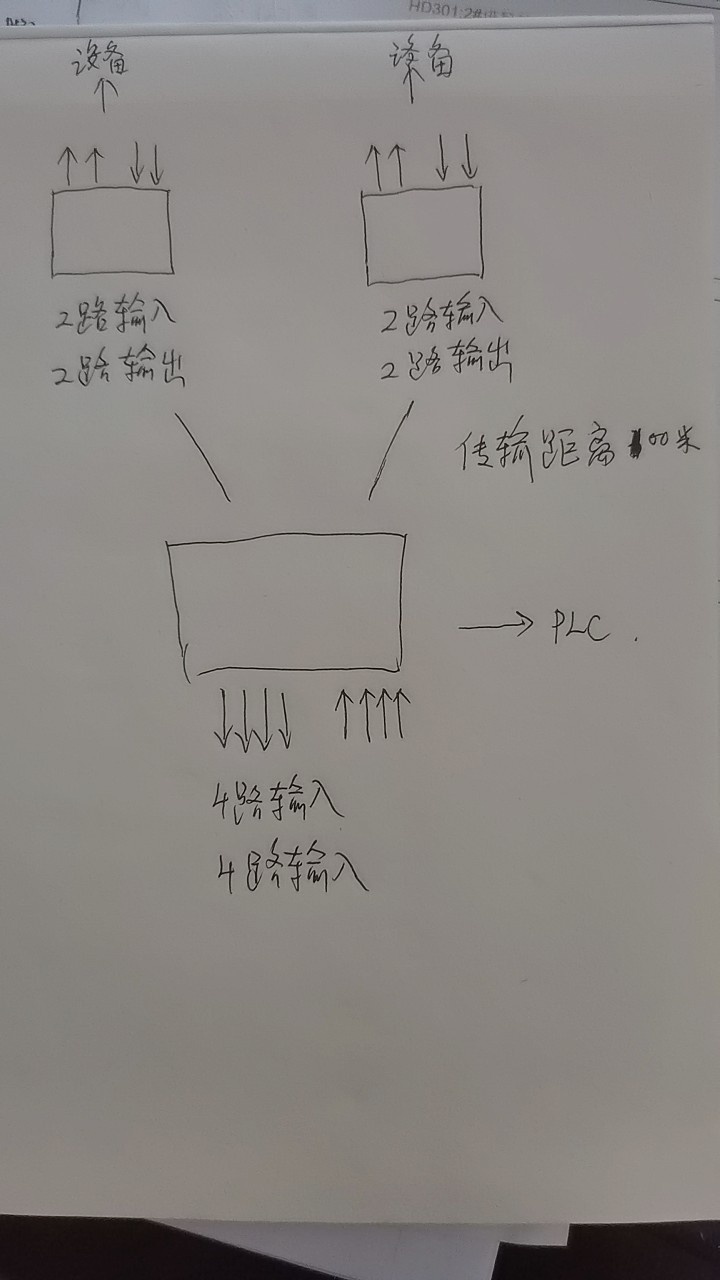 HD301:2#
设备 设备
2路输入 2路输入
2路输出 2路输出
传输距离 00米
PLC.
4路输入
4路输入